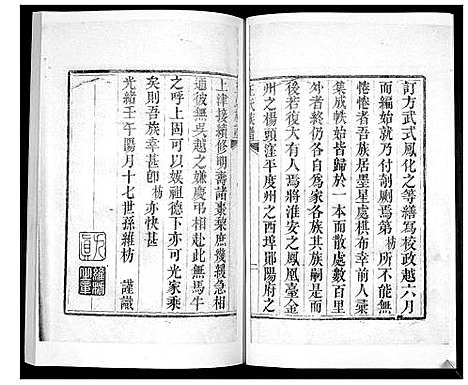 訂方武式鳳化之等繕寫校政越六月
而編始就乃付剞劂焉第枋所不能無
惓惓者吾族居墨星處棋布幸前人彙
集成帙始皆歸於一本而散處數百里
外者終仍各自為家各族其族嗣是而
後若復有人焉將淮安之鳳凰臺金
州之楊頭窪平度州之西埠鄖陽府之
上津接續修明壽諸棗梨庶幾緩急相
通彼無吳越之嫌慶弔相赴此無馬牛
之呼上固可以妥祖德下亦可光家乘
矣則吾族幸甚即枋亦快甚
光緒壬午陽月十七世孫維枋 謹識